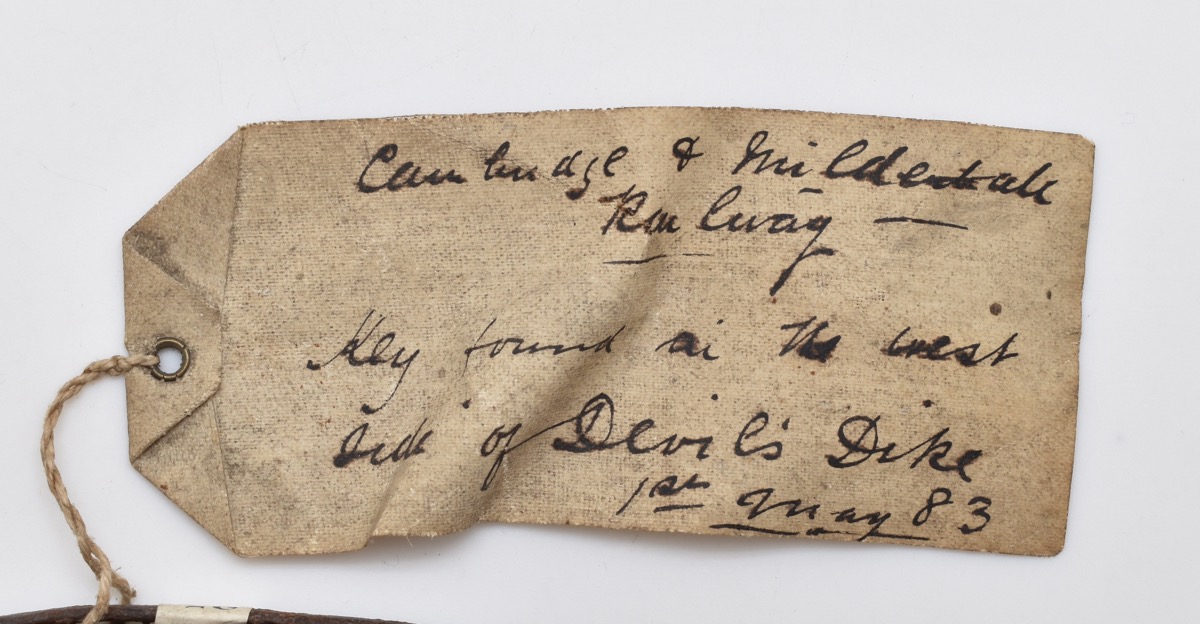 Cambridge & Mildenhall
Railway —
Key found in the west
side of Devil's Dike
1st May 83